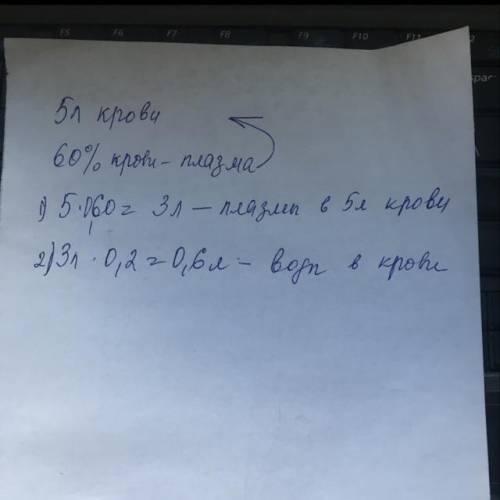 5л крови
60% крови - плазма
1) 5·0,60 = 3л — плазмы в 5л крови
2) 3л · 0,2 = 0,6л — воды в крови
F5 F6 F7 F8 F9 F10 F11